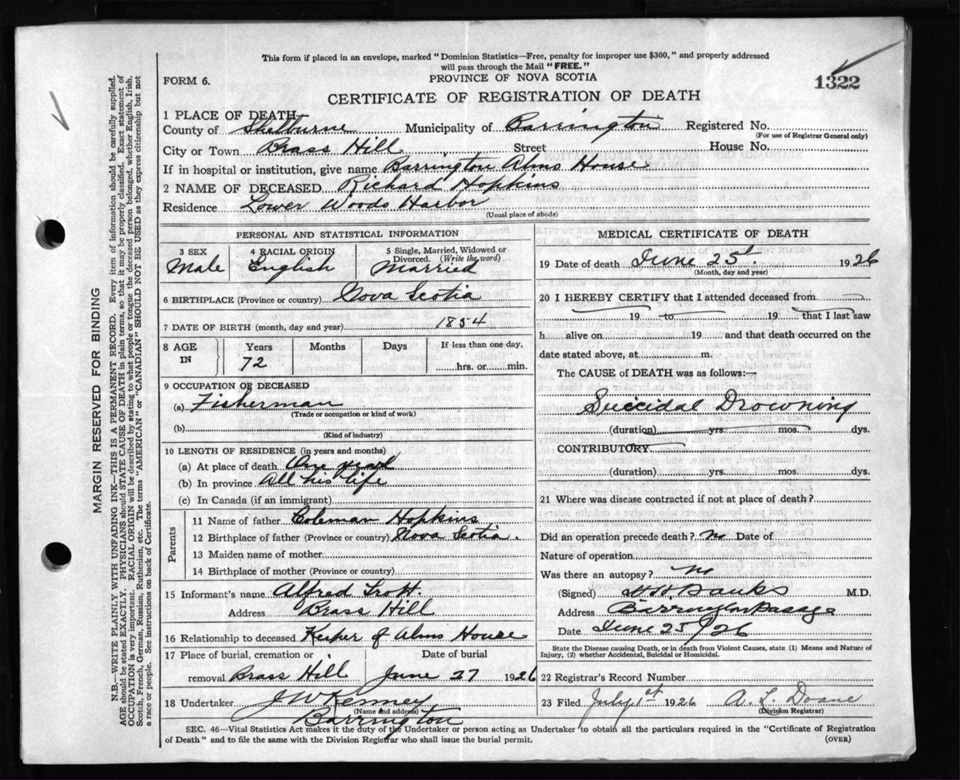 This form if placed in an envelope, marked "Dominion Statistics—Free, penalty for improper use $300," and properly addressed
will pass through the Mail "FREE."
FORM 6.
PROVINCE OF NOVA SCOTIA
1322
CERTIFICATE OF REGISTRATION OF DEATH
1 PLACE OF DEATH
County of Shelburne Municipality of Barrington Registered No.
(For use of Registrar General only)
City or Town Brass Hill Street House No.
If in hospital or institution, give name Barrington Alms House
2 NAME OF DECEASED Richard Hopkins
Residence Lower Woods Harbor
(Usual place of abode)
PERSONAL AND STATISTICAL INFORMATION
3 SEX 4 RACIAL ORIGIN 5 Single, Married, Widowed or Divorced. (Write the word)
Male English Married
6 BIRTHPLACE (Province or country) Nova Scotia
7 DATE OF BIRTH (month, day and year) 1854
8 AGE IN Years Months Days If less than one day,
72 hrs. or min.
9 OCCUPATION OF DECEASED
(a) Fisherman
(Trade or occupation or kind of work)
(b)
(Kind of industry)
10 LENGTH OF RESIDENCE (in years and months)
(a) At place of death One year
(b) In province All his life
(c) In Canada (if an immigrant)
Parents
11 Name of father Coleman Hopkins
12 Birthplace of father (Province or country) Nova Scotia.
13 Maiden name of mother
14 Birthplace of mother (Province or country)
15 Informant's name Alfred Trott.
Address Brass Hill
16 Relationship to deceased Keeper of Alms House
17 Place of burial, cremation or removal Date of burial
Brass Hill June 27 1926
18 Undertaker J W Kenney
(Name and address)
Barrington
MEDICAL CERTIFICATE OF DEATH
19 Date of death June 25t 1926
(Month, day and year)
20 I HEREBY CERTIFY that I attended deceased from
19 to 19 that I last saw
h alive on 19 and that death occurred on
date stated above, at m.
The CAUSE of DEATH was as follows:—
Suicidal Drowning
(duration) yrs. mos. dys.
CONTRIBUTORY
(duration) yrs. mos. dys.
21 Where was disease contracted if not at place of death?
Did an operation precede death? No Date of
Nature of operation
Was there an autopsy? No
(Signed) Banks M.D.
Address Barrington Passage
Date June 25/26
State the Disease causing Death, or in death from Violent Causes, state (1) Means and Nature of
Injury, (2) whether Accidental, Suicidal or Homicidal.
22 Registrar's Record Number
23 Filed July 1st 1926 A. L. Doane
(Division Registrar)
SEC. 46—Vital Statistics Act makes it the duty of the Undertaker or person acting as Undertaker to obtain all the particulars required in the "Certificate of Registration
of Death" and to file the same with the Division Registrar who shall issue the burial permit. (OVER)
MARGIN RESERVED FOR BINDING
N.B.—WRITE PLAINLY WITH UNFADING INK—THIS IS A PERMANENT RECORD. Every item of information should be carefully supplied.
AGE should be stated EXACTLY. PHYSICIANS should STATE CAUSE OF DEATH in plain terms, so that it may be properly classified. Exact statement of
OCCUPATION is very important. RACIAL ORIGIN will be described by stating to what people or tongue the deceased person belonged, whether English, Irish,
Scotch, French, German, Russian, Ruthenian, etc. The terms "AMERICAN" or "CANADIAN" SHOULD NOT BE USED as they express citizenship but not
a race or people. See instructions on back of Certificate.